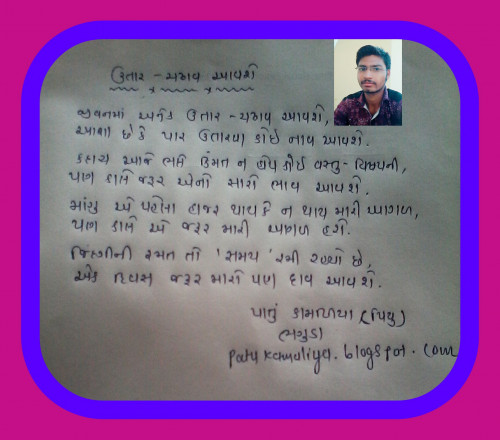 ઉતાર - ચઢાવ આવશે
જીવનમાં અનેક ઉતાર - ચઢાવ આવશે,
આશા છે કે પાર ઉતારવા કોઈ નાવ આવશે.
કદાચ આજે ભલે કિંમત ન હોય કોઈ વસ્તુ - વિષયની,
પણ કાલે જરૂર એનો સારો ભાવ આવશે.
માંગુ એ પહેલા હાજર થાય કે ન થાય મારી આગળ,
પણ કાલે એ જરૂર મારી આગળ હશે.
જિંદગીની રમત તો 'સમય' રમી રહ્યો છે,
એક દિવસ જરૂર મારો પણ દાવ આવશે.
પાતું કામળિયા (પિયુ)
ભગુડા
patu kamaliya.blogspot.com